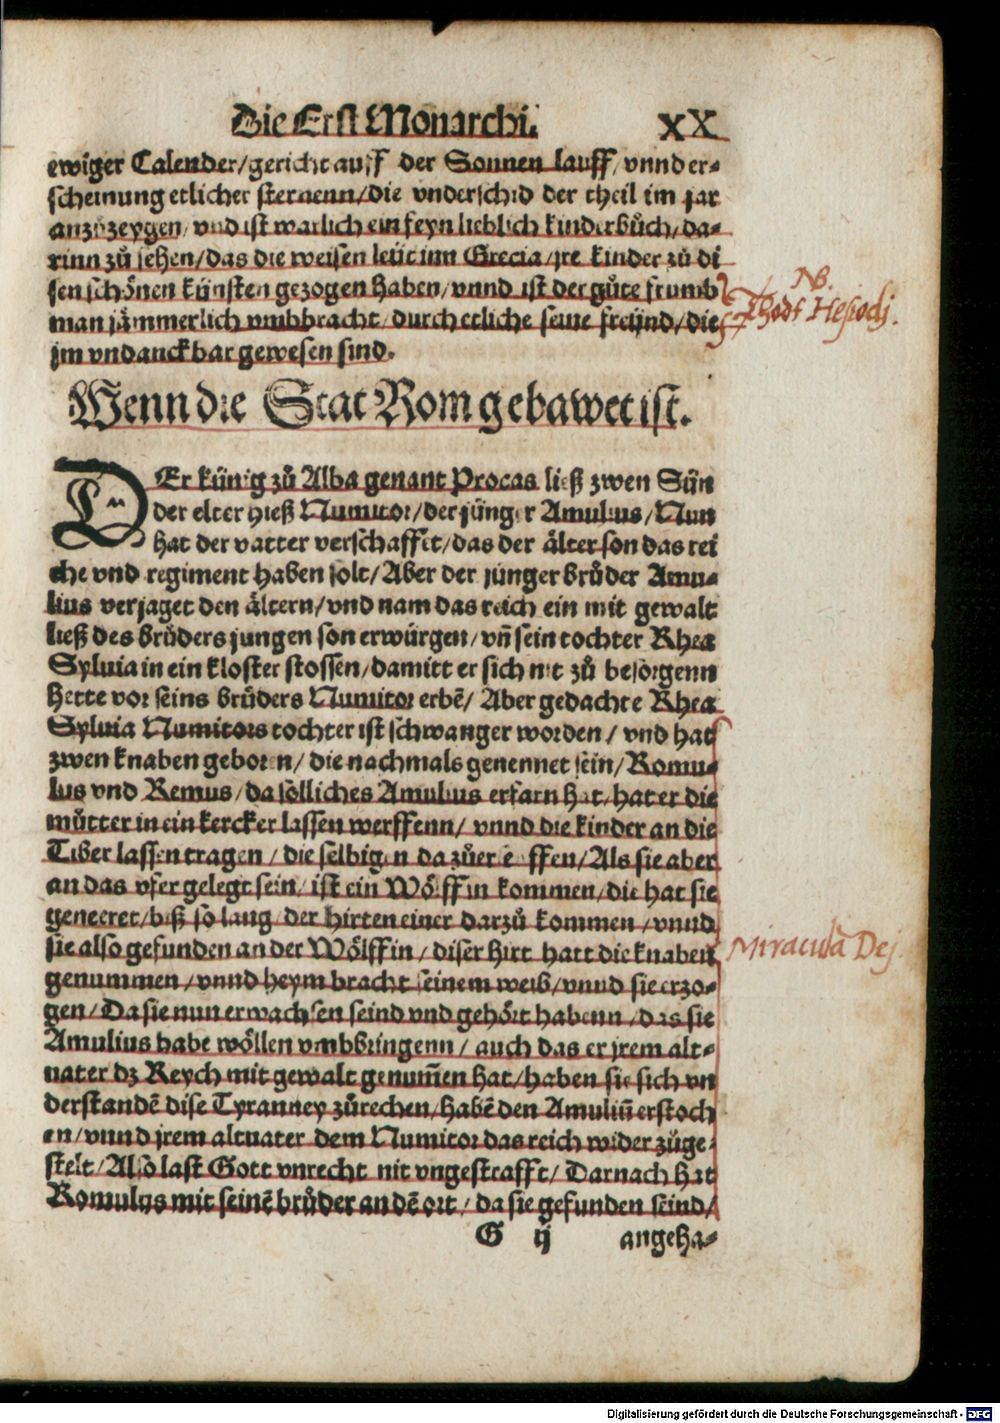 Die Erst Monarchi. XX
ewiger Calender/gericht auff der Sonnen lauff/ vnnd er-
scheinung etlicher sternenn/die vnderschid der theil im jar
anzůzeygen/ vnd ist warlich ein feyn lieblich kinderbůch/da-
rinn zů sehen/das die weisen leüt inn Grecia/jre kinder zů di
sen schönen künsten gezogen haben/vnnd ist der gůte frumb
NB.
man jämmerlich vmbbracht/durch etliche seine freünd/die
Todt Hesiodj.
jm vndanckbar gewesen sind.
Wenn die Stat Rom gebawet ist.
DEr künig zů Alba genant Procas ließ zwen Sün
der elter hieß Numitor/der jünger Amulius/Nun
hat der vatter verschaffet/das der älter son das rei
che vnd regiment haben solt/Aber der jünger brůder Amu-
lius verjaget den ältern/vnd nam das reich ein mit gewalt
ließ des brůders jungen son erwürgen/vñ sein tochter Rhea
Syluia in ein kloster stossen/damitt er sich nit zů besorgenn
hette vor seins brůders Numitor erbē/ Aber gedachte Rhea
Syluia Numitors tochter ist schwanger worden/ vnd hat
zwen knaben geboren/die nachmals genennet sein/Romu-
lus vnd Remus/da sölliches Amulius erfarn hat/hat er die
můtter in ein kercker lassen werffenn/ vnnd die kinder an die
Tiber lassen tragen/die selbigen da zůerseuffen/Als sie aber
an das vfer gelegt sein/ ist ein Wölffin kommen/die hat sie
geneeret/biß so lang der hirten einer darzů kommen/vnnd
sie also gefunden an der Wölffin/diser Hirt hatt die knaben
Miracula Dej.
genummen/vnnd heym bracht seinem weib/vnnd sie erzo-
gen/Da sie nun erwachsen seind vnd gehört habenn/das sie
Amulius habe wöllen vmbbringenn/ auch das er jrem alt-
uater dz Reych mit gewalt genum̄en hat/haben sie sich vn
derstandē dise Tyranney zůrechen/habē den Amuliū erstoch
en/vnnd jrem altuater dem Numitor das reich wider zůge-
stelt/Also last Gott vnrecht nit vngestrafft/Darnach hat
Romulus mit seinē brůder an dē ort/da sie gefunden seind/
G ij angeha-
Digitalisierung gefördert durch die Deutsche Forschungsgemeinschaft - DFG